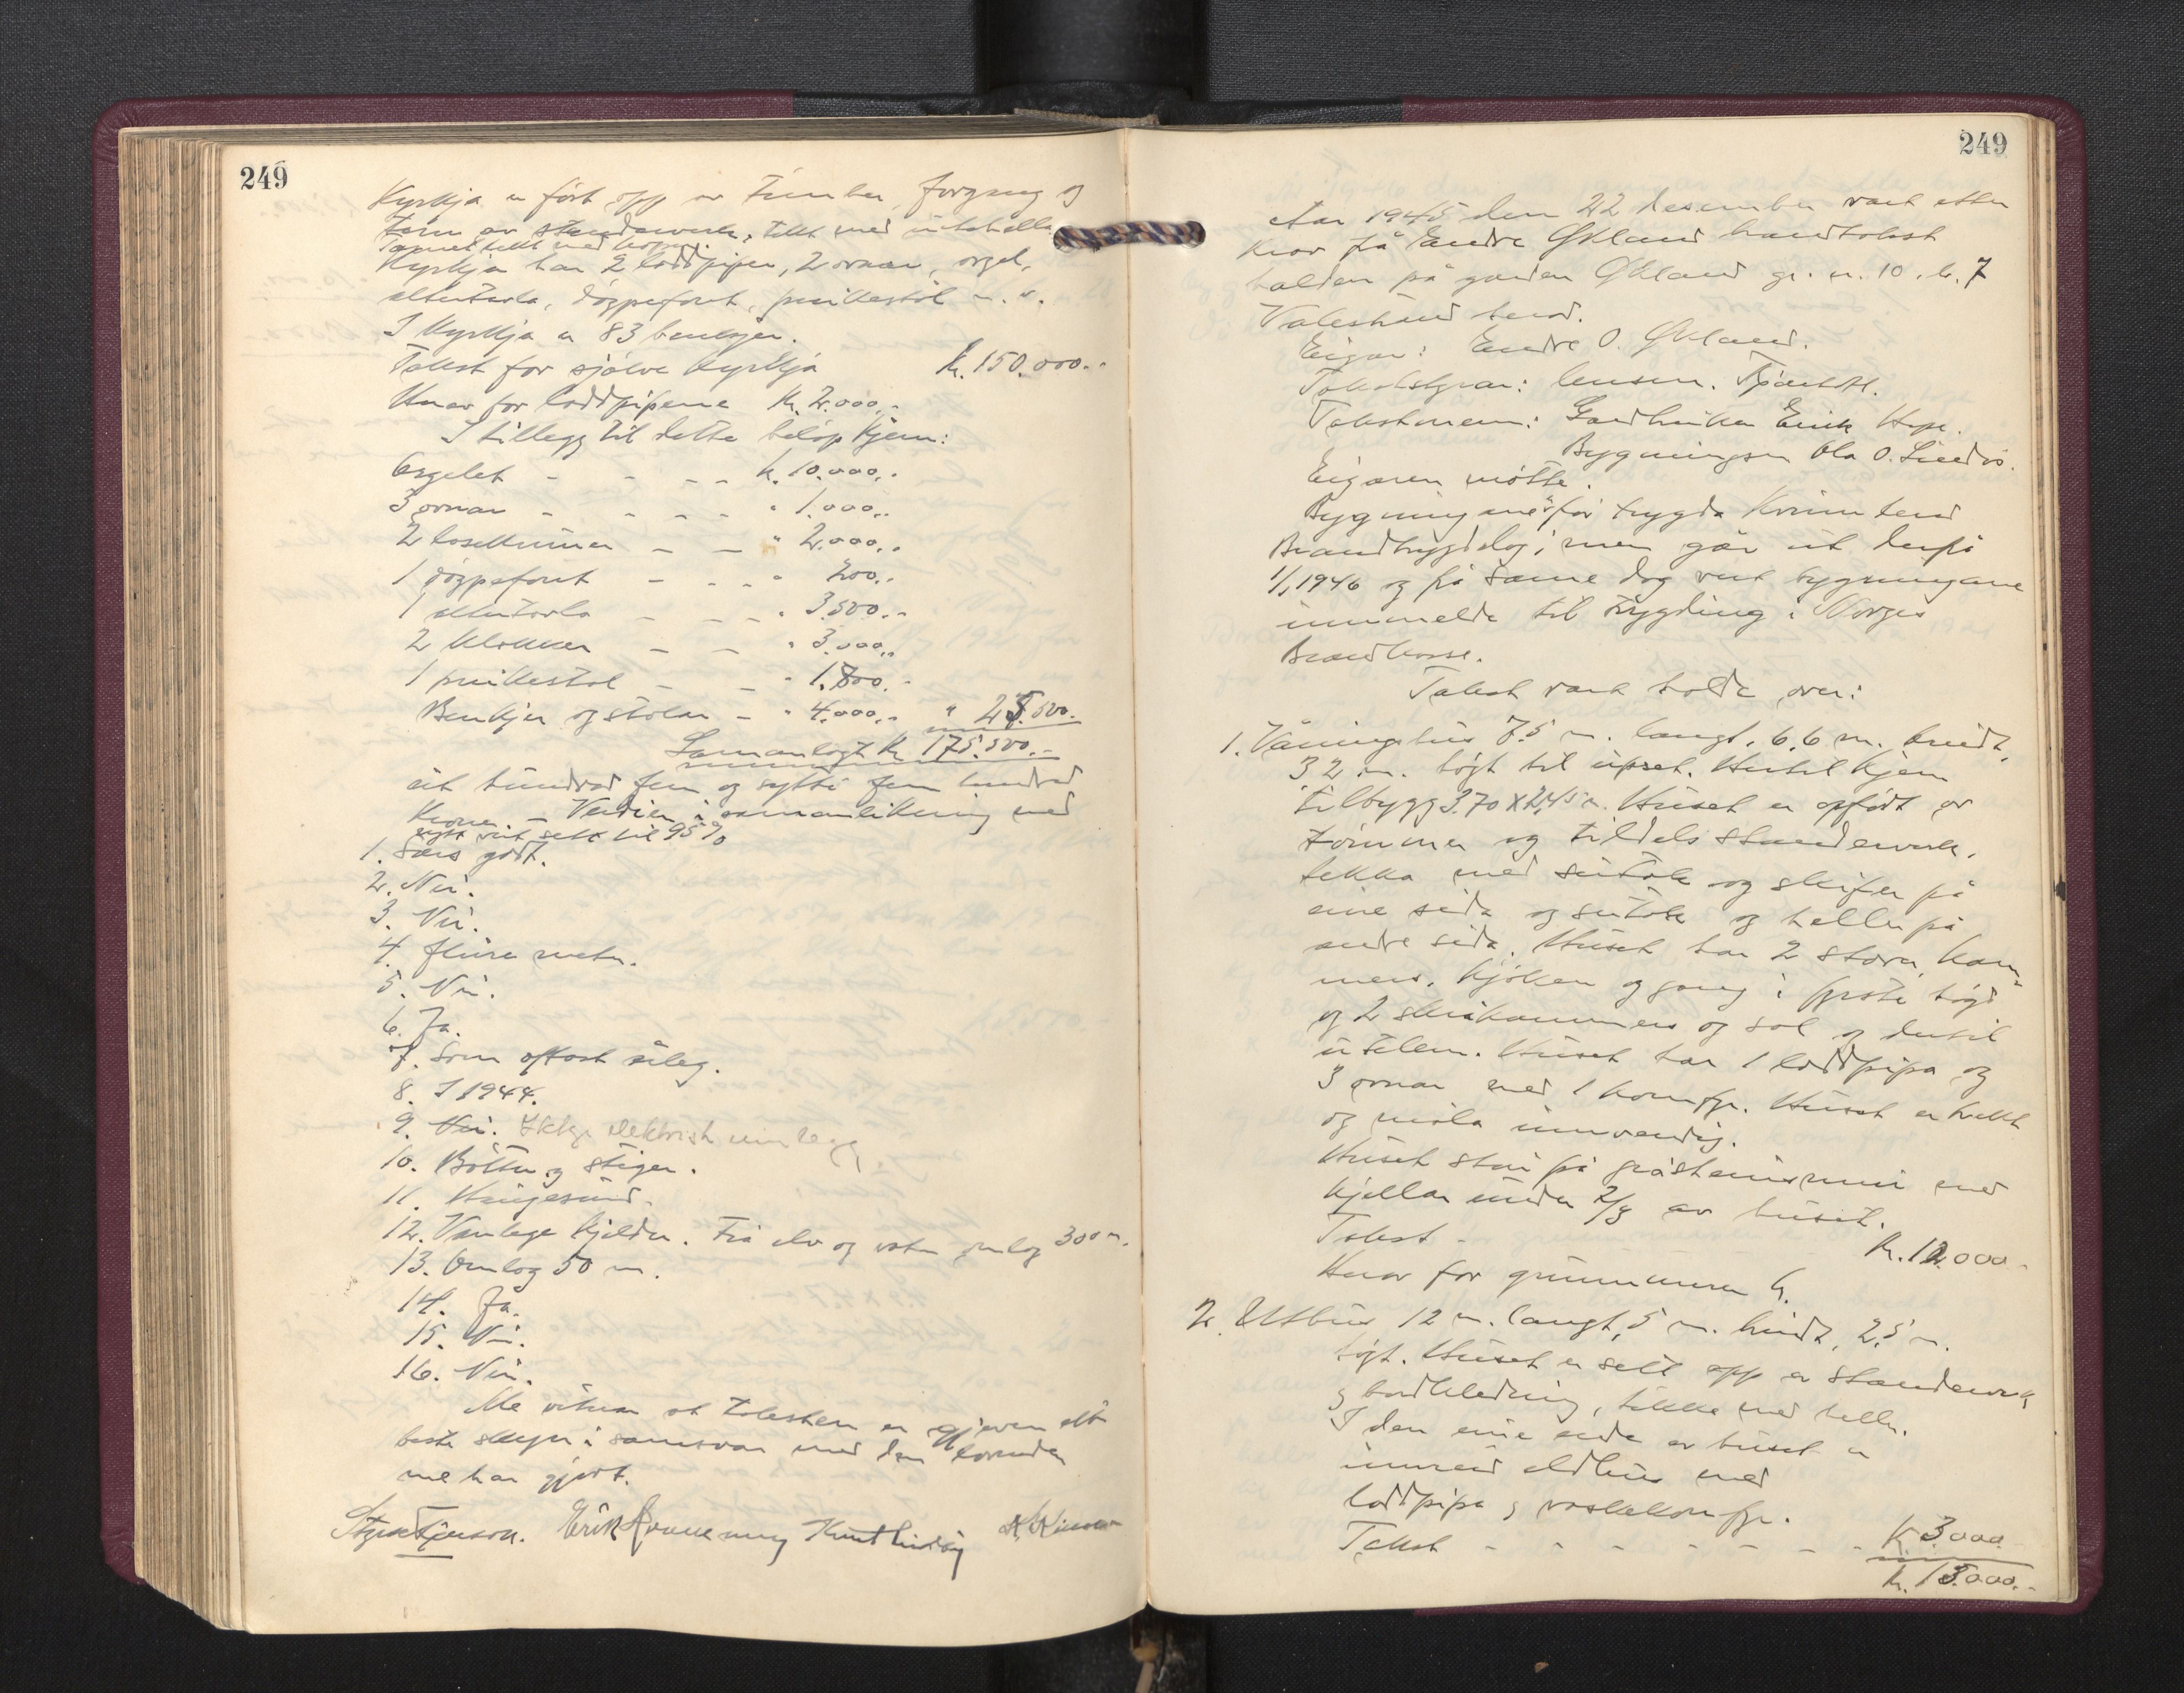 249
Kyrkja er ført opp av timber, forgang og
torn av standeverk, tekt med
Tornet tekt med kopar.
Kyrkja har 2 loddpiper, 2 omnar, orgel,
altertavla, døypefont, preikestol m. v.
I kyrkja er 83 benkjer.
Takst for sjølve kyrkja kr. 150.000.-
Herav for loddpipene kr. 2.000.-
I tillegg til dette beløp kjem:
Orgelet - - - - kr. 10.000.-
3 omnar - - - - " 1.000.-
2 - - " 2.000.-
1 døypefont - - - " 200.-
1 altertavla - - - " 3.500.-
2 klokker - - " 3.000.-
1 preikestol - - " 1.800.-
Benkjer og stolar - " 4.000.- " 25.500.-
Samanlagt kr. 175.500.-
eit hundrad fem og sytti fem hundrad
kroner. - Verdien i samanlikning med
nytt vert sett til 95%
1. Særs godt.
2. Nei.
3. Nei.
4. fleire meter.
5. Nei.
6. Ja.
7. Som oftast årleg.
8. I 1944.
9. Nei. Ikkje elektrisk innlegg
10. Bøtter og stigar.
11. Haugesund.
12. Vanlege kjelder. Frå elv og vatn omlag 300 m.
13. Omlag 50 m.
14. Ja.
15. Nei.
16. Nei.
Me vitnar at taksten er gjeven etter
beste skyn i samsvar med den
me har gjort.
Knut Lindøy
249
Aar 1945 den 22 desember vart etter
krav frå Endre Økland brandtakst
halden på garden Økland gr. nr. 10, br. 7
Valestrand herad.
Eigar: Endre O. Økland.
Takststyrar: lensm. Tjernagel.
Takstmenn: Gardbrukar Erik Hope.
Bygningsm Ola O.
Eigaren møtte.
Bygningane før trygda i Kvinnherad
Brandtrygdelag, men går ut derfrå
1/1 1946 og frå same dag vert bygningane
innmelde til trygding i Norges
Brandkasse.
Takst vart halde over:
1. Våningshus 7,5 m. langt, 6,6 m. breidt,
3,2 m. høgt til upset. Hertil kjem
tilbygg 3.70 X 2,45 m. Huset er oppført av
tømmer og tildels standeverk,
tekka med sutak og skifer på
eine sida og sutak og heller på
andre sida. Huset har 2 stover, kam-
mers, kjøken og gang i fyrste høgd
og 2 skråkammers og sal og dertil
utelem. Huset har 1 loddpipa og
3 omnar med 1 komfyr. Huset er kledt
og måla innvendig.
Huset står på gråsteinsmur med
kjellar under 2/3 av huset.
Takst - kr. 12.000.-
Herav for grunnmuren kr.
2. Uthus 12 m. langt, 5 m. breidt, 2,5 m.
høgt. Huset er sett opp av standeverk
og bordkledning, tekka med heller.
I den eine enda av huset er
innreid eldhus med
loddpipe og vaskekomfyr.
Takst - - - - - - - - kr. 3.000.-
kr. 15.000.-